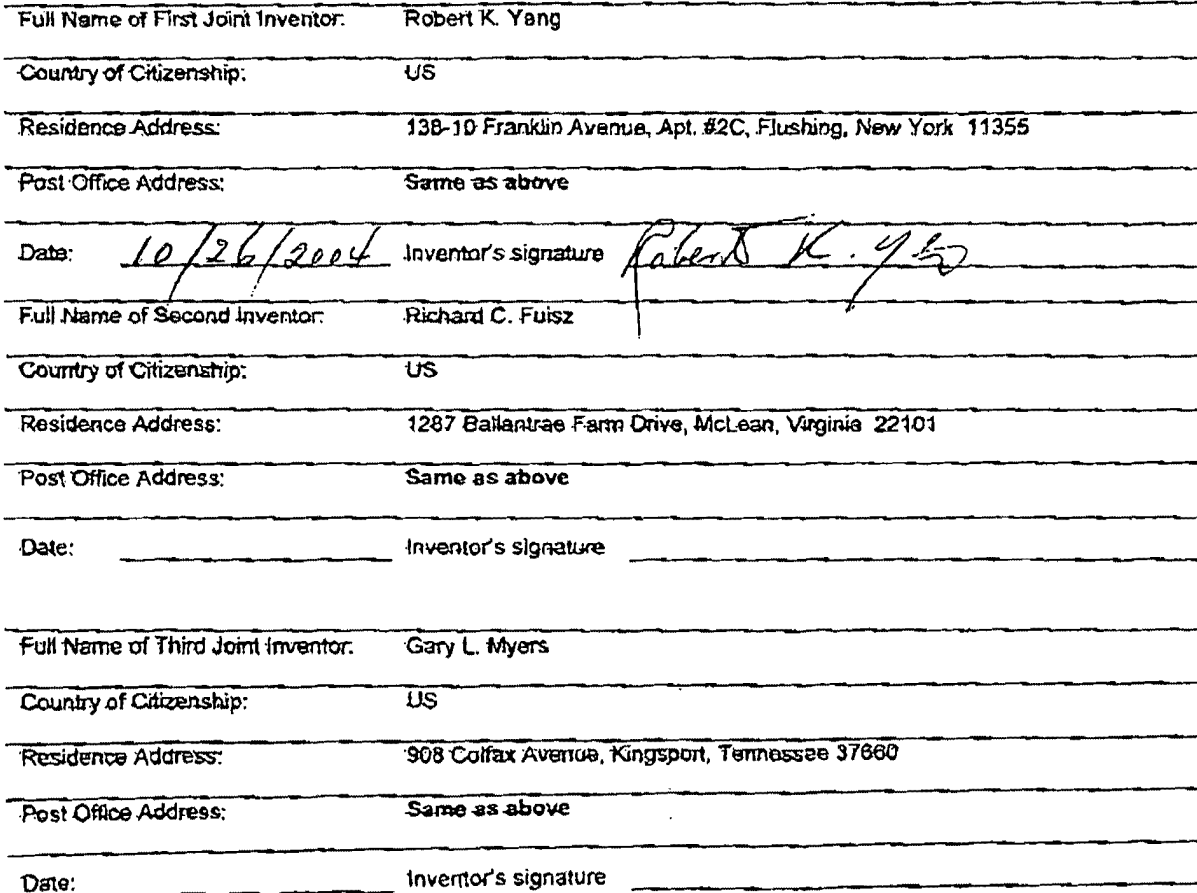 Full Name of First Joint Inventor: Robert K. Yang
Country of Citizenship: US
Residence Address: 138-10 Franklin Avenue, Apt. #2C, Flushing, New York 11355
Post Office Address: Same as above
Date: 10/26/2004 Inventor's signature Robert K. Yang
Full Name of Second Inventor: Richard C. Fuisz
Country of Citizenship: US
Residence Address: 1287 Ballantrae Farm Drive, McLean, Virginia 22101
Post Office Address: Same as above
Date: Inventor's signature
Full Name of Third Joint Inventor: Gary L. Myers
Country of Citizenship: US
Residence Address: 908 Colfax Avenue, Kingsport, Tennessee 37660
Post Office Address: Same as above
Date: Inventor's signature